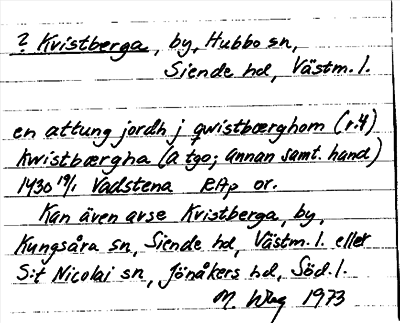 ? Kvistberga, by, Hubbo sn,
Siende hd, Västm. l.
en attung jordh j qwistbærghom (r.4)
kwistbærgha (a tgo; annan samt. hand)
1430 19/1 Vadstena RAp or.
Kan även avse Kvistberga, by,
Kungsåra sn, Siende hd, Västm. l. eller
S:t Nicolai sn, Jönåkers hd, Söd. l.
M. 1973